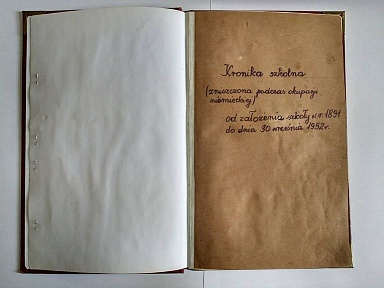 Kronika szkolna
(zniszczona podczas okupacji
niemieckiej)
od założenia szkoły w r. 1891
do dnia 30 września 1952 r.